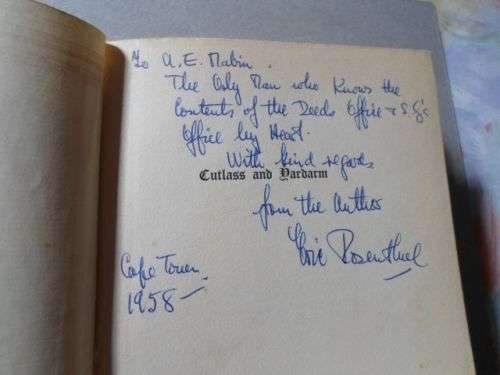 To A. E. Mabin.
The Only Man who Knows the
Contents of the Deeds Office & S.G's
Office by Heart.
With kind regards
Cutlass and Yardarm
from the Author
Eric Rosenthal
Cape Town
1958